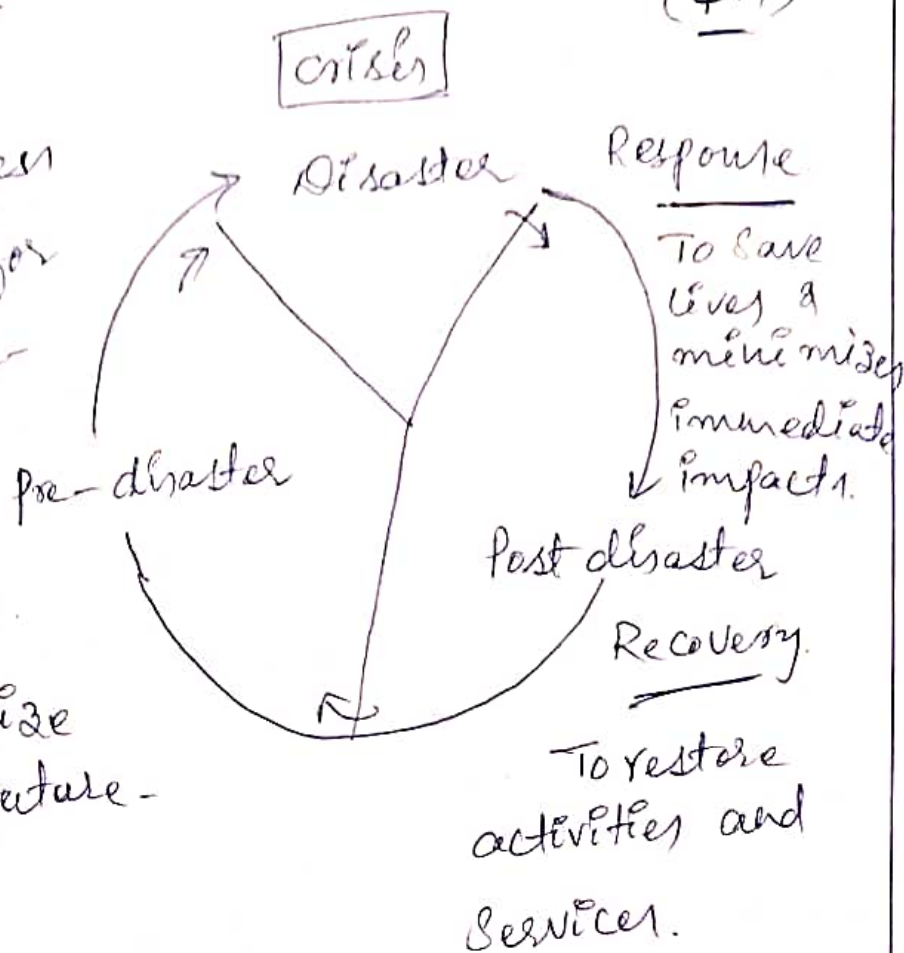 Crisis
Disaster
Response
To Save
lives &
minimizes
immediate
impacts.
Pre-disaster
Post disaster
Recovery.
To restore
activities and
Services.